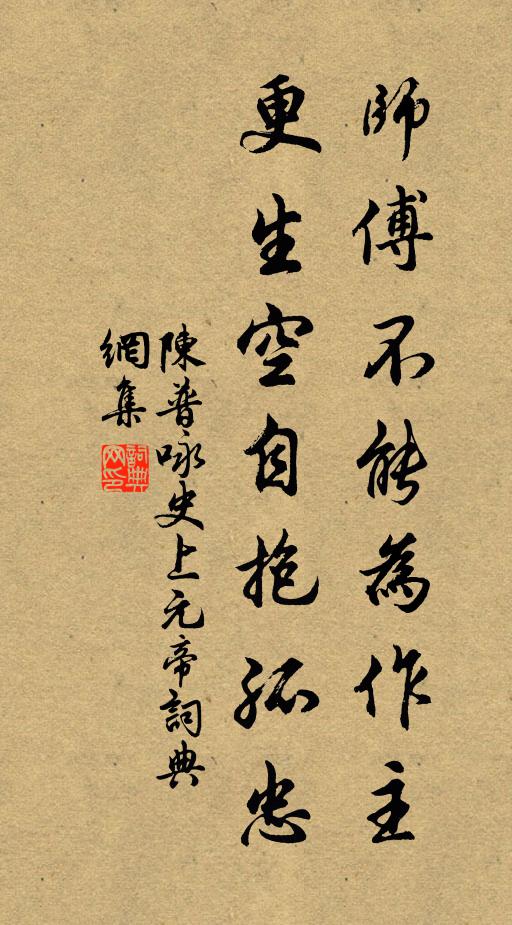 師傅不能為作主
更生空自抱孤忠
陳普咏史上元帝詞典
網集
詞典
网印